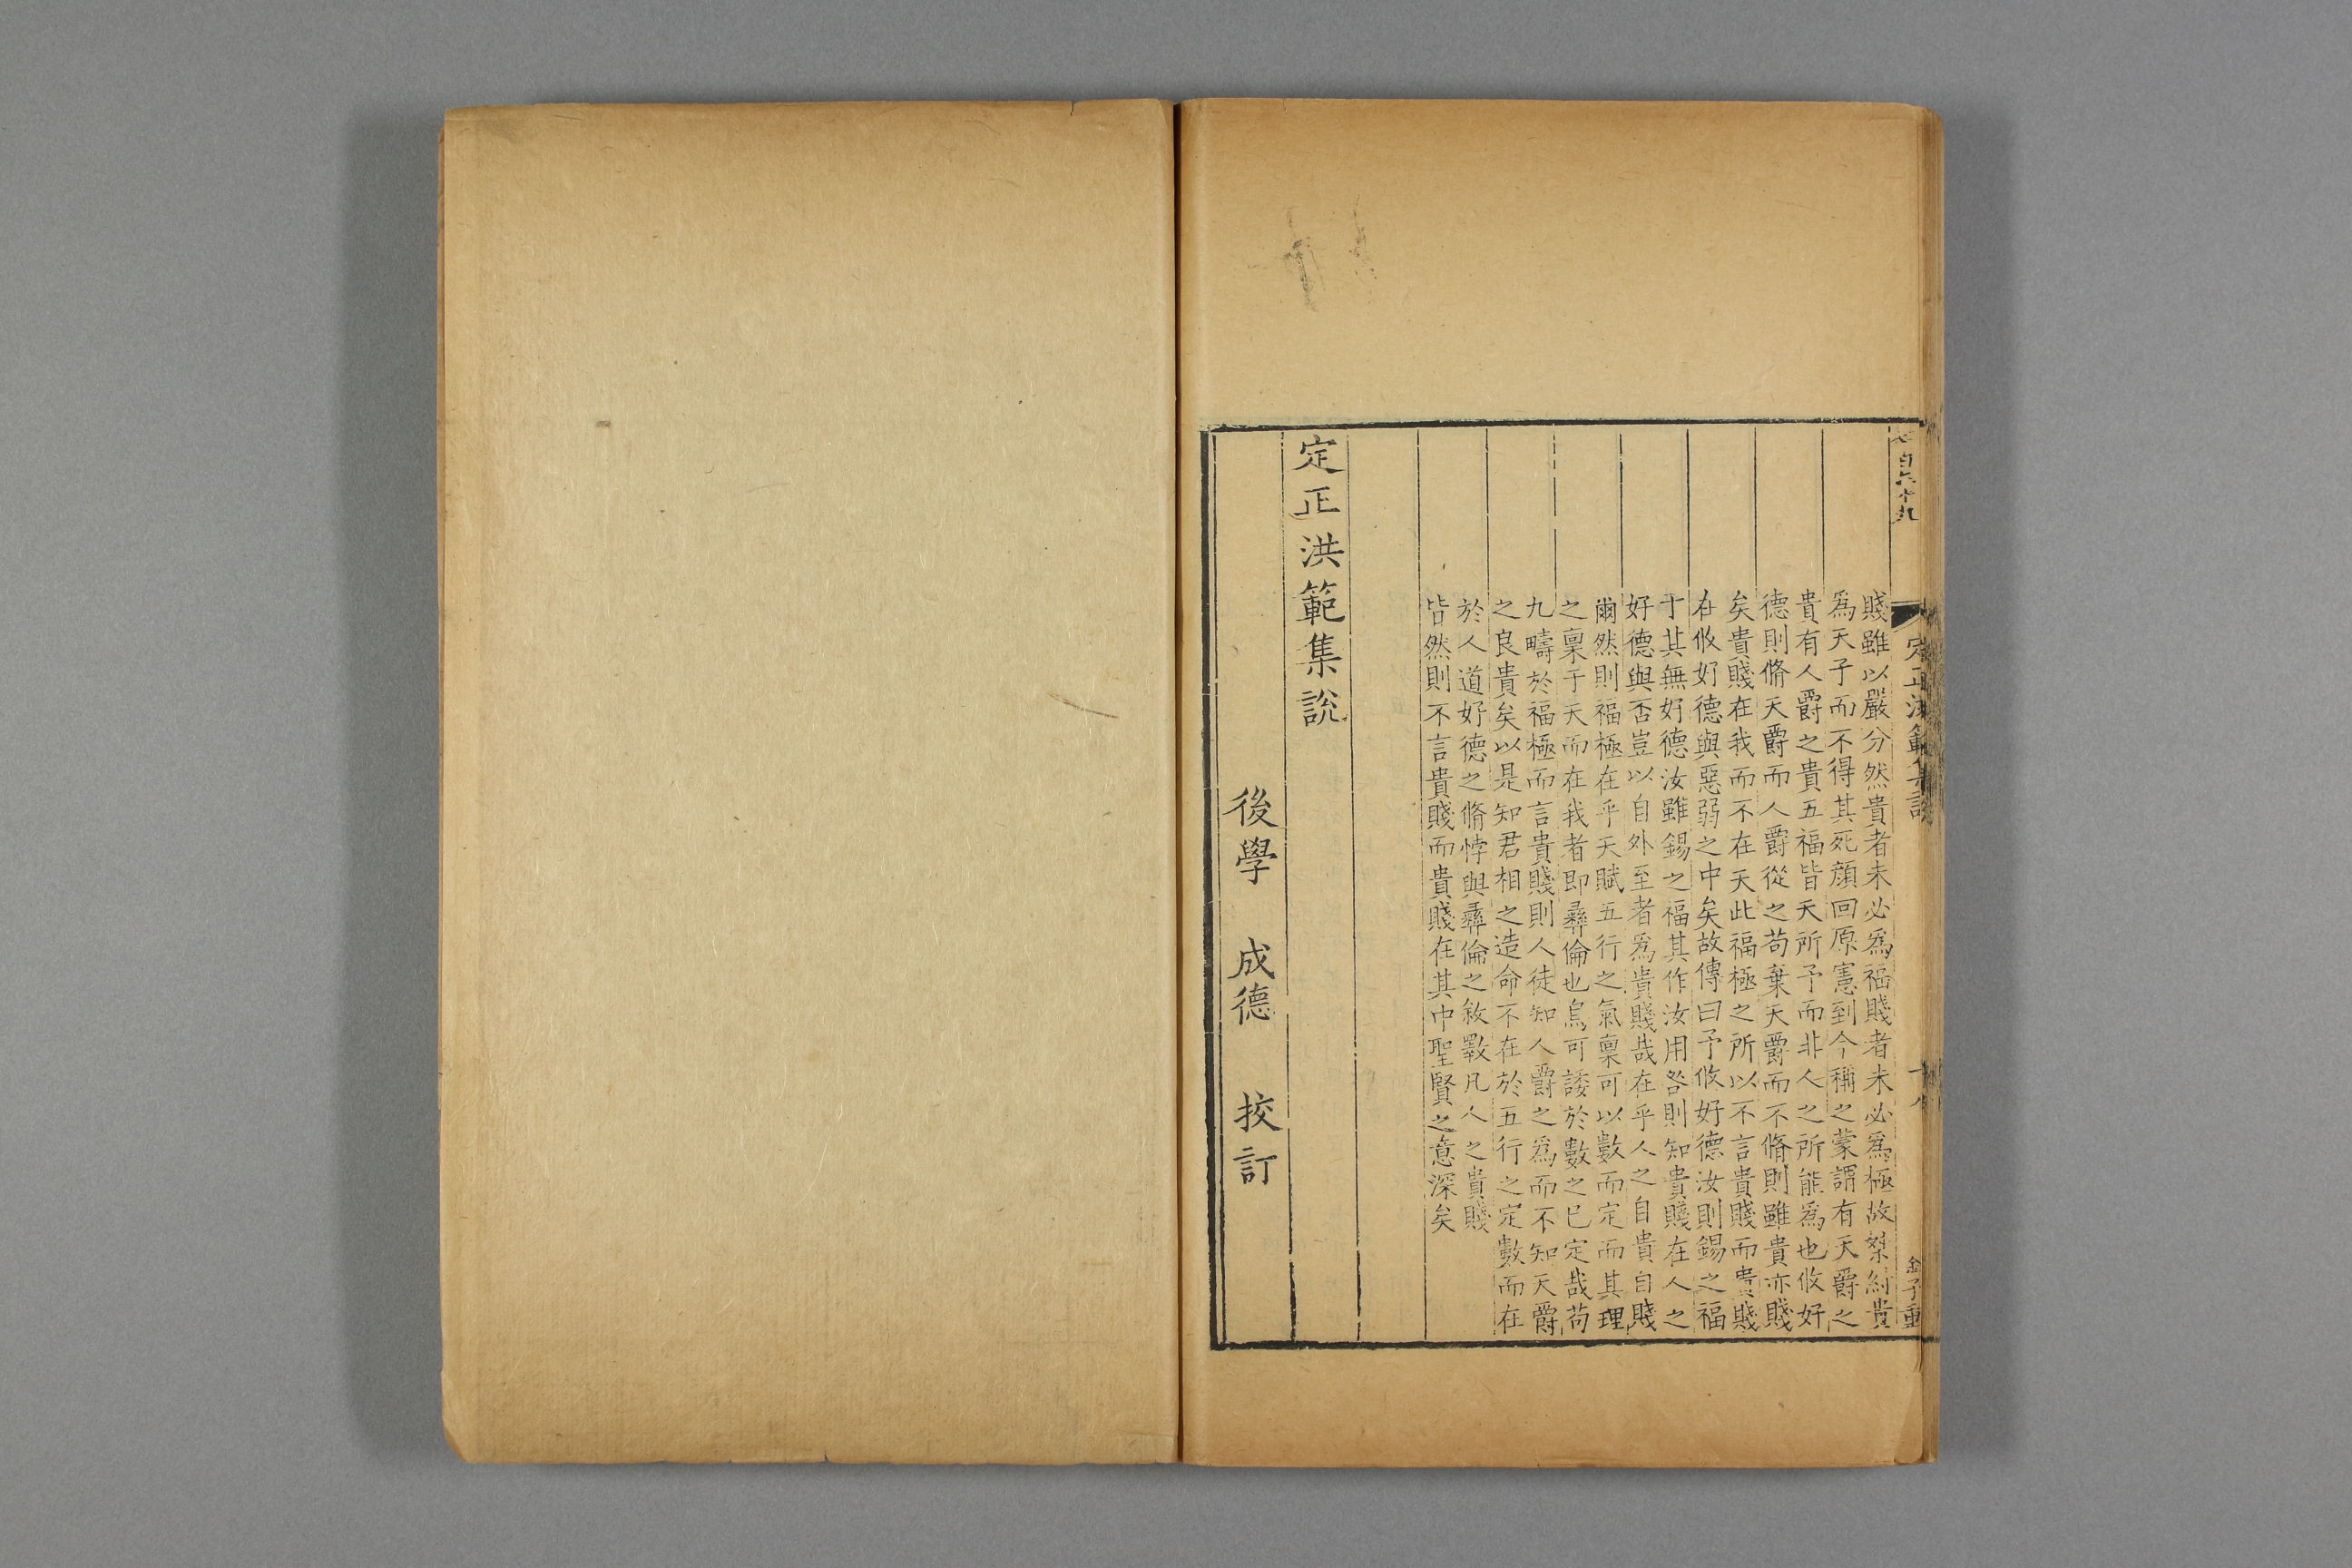 賤雖以嚴分然貴者未必爲福賤者未必爲極故桀紂貴
爲天子而不得其死顔回原憲到今稱之蒙謂有天爵之
貴有人爵之貴五福皆天所予而非人之所能爲也攸好
德則脩天爵而人爵從之苟棄天爵而不脩則雖貴亦賤
矣貴賤在我而不在天此福極之所以不言貴賤而貴賤
在攸好德與惡弱之中矣故傳曰予攸好德汝則錫之福
于其無好德汝雖錫之福其作汝用咎則知貴賤在人之
好德與否豈以自外至者爲貴賤哉在乎人之自貴自賤
爾然則福極在乎天賦五行之氣稟可以數而定而其理
之稟于天而在我者即彝倫也烏可諉於數之已定哉苟
九疇於福極而言貴賤則人徒知人爵之爲而不知天爵
之良貴矣以是知君相之造命不在於五行之定數而在
於人道好德之脩悖與彝倫之敘斁凡人之貴賤
皆然則不言貴賤而貴賤在其中聖賢之意深矣
定正洪範集說
後學 成德 挍訂
百六十九
定正洪範集說
十八
金子重